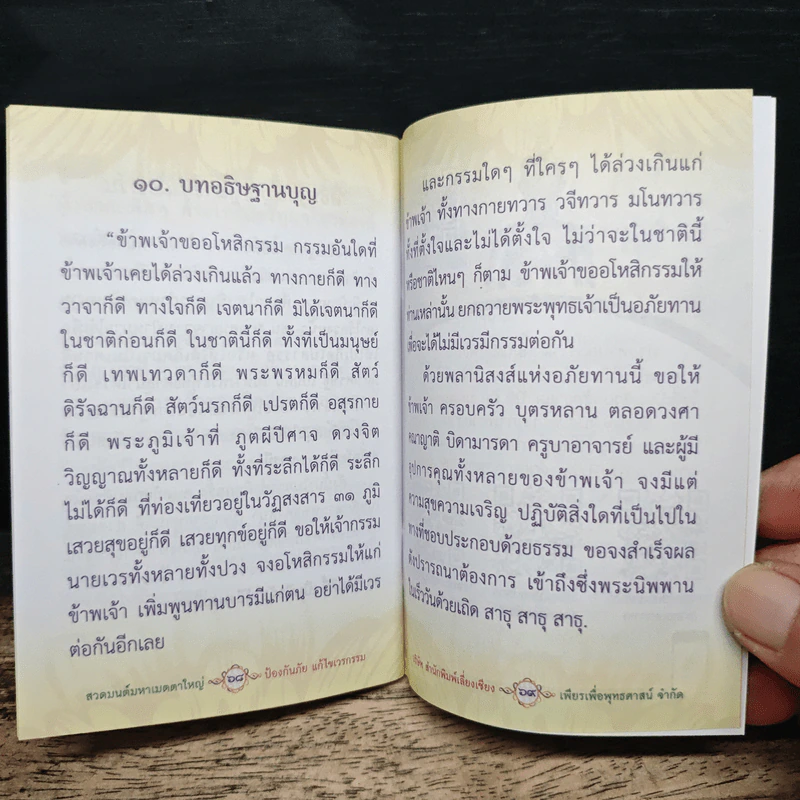 ๑๐. บทอธิษฐานบุญ
“ข้าพเจ้าขออโหสิกรรม กรรมอันใดที่
ข้าพเจ้าเคยได้ล่วงเกินแล้ว ทางกายก็ดี ทาง
วาจาก็ดี ทางใจก็ดี เจตนาก็ดี มิได้เจตนาก็ดี
ในชาติก่อนก็ดี ในชาตินี้ก็ดี ทั้งที่เป็นมนุษย์
ก็ดี เทพเทวดาก็ดี พระพรหมก็ดี สัตว์
ดิรัจฉานก็ดี สัตว์นรกก็ดี เปรตก็ดี อสุรกาย
ก็ดี พระภูมิเจ้าที่ ภูตผีปีศาจ ดวงจิต
วิญญาณทั้งหลายก็ดี ทั้งที่ระลึกได้ก็ดี ระลึก
ไม่ได้ก็ดี ที่ท่องเที่ยวอยู่ในวัฏสงสาร ๓๑ ภูมิ
เสวยสุขอยู่ก็ดี เสวยทุกข์อยู่ก็ดี ขอให้เจ้ากรรม
นายเวรทั้งหลายทั้งปวง จงอโหสิกรรมให้แก่
ข้าพเจ้า เพิ่มพูนทานบารมีแก่ตน อย่าได้มีเวร
ต่อกันอีกเลย
สวดมนต์มหาเมตตาใหญ่ ๖๘ ป้องกันภัย แก้ไขเวรกรรม
และกรรมใดๆ ที่ใครๆ ได้ล่วงเกินแก่
ข้าพเจ้า ทั้งทางกายทวาร วจีทวาร มโนทวาร
ทั้งที่ตั้งใจและไม่ได้ตั้งใจ ไม่ว่าจะในชาตินี้
หรือชาติไหนๆ ก็ตาม ข้าพเจ้าขออโหสิกรรมให้
ท่านเหล่านั้น ยกถวายพระพุทธเจ้าเป็นอภัยทาน
เพื่อจะได้ไม่มีเวรมีกรรมต่อกัน
ด้วยพลานิสงส์แห่งอภัยทานนี้ ขอให้
ข้าพเจ้า ครอบครัว บุตรหลาน ตลอดวงศา
คณาญาติ บิดามารดา ครูบาอาจารย์ และผู้มี
อุปการคุณทั้งหลายของข้าพเจ้า จงมีแต่
ความสุขความเจริญ ปฏิบัติสิ่งใดที่เป็นไปใน
ทางที่ชอบประกอบด้วยธรรม ขอจงสำเร็จผล
ดังปรารถนาต้องการ เข้าถึงซึ่งพระนิพพาน
ในเร็ววันด้วยเถิด สาธุ สาธุ สาธุ.
สำนักพิมพ์เลี่ยงเชียง ๖๙ เพียรเพื่อพุทธศาสน์ จำกัด